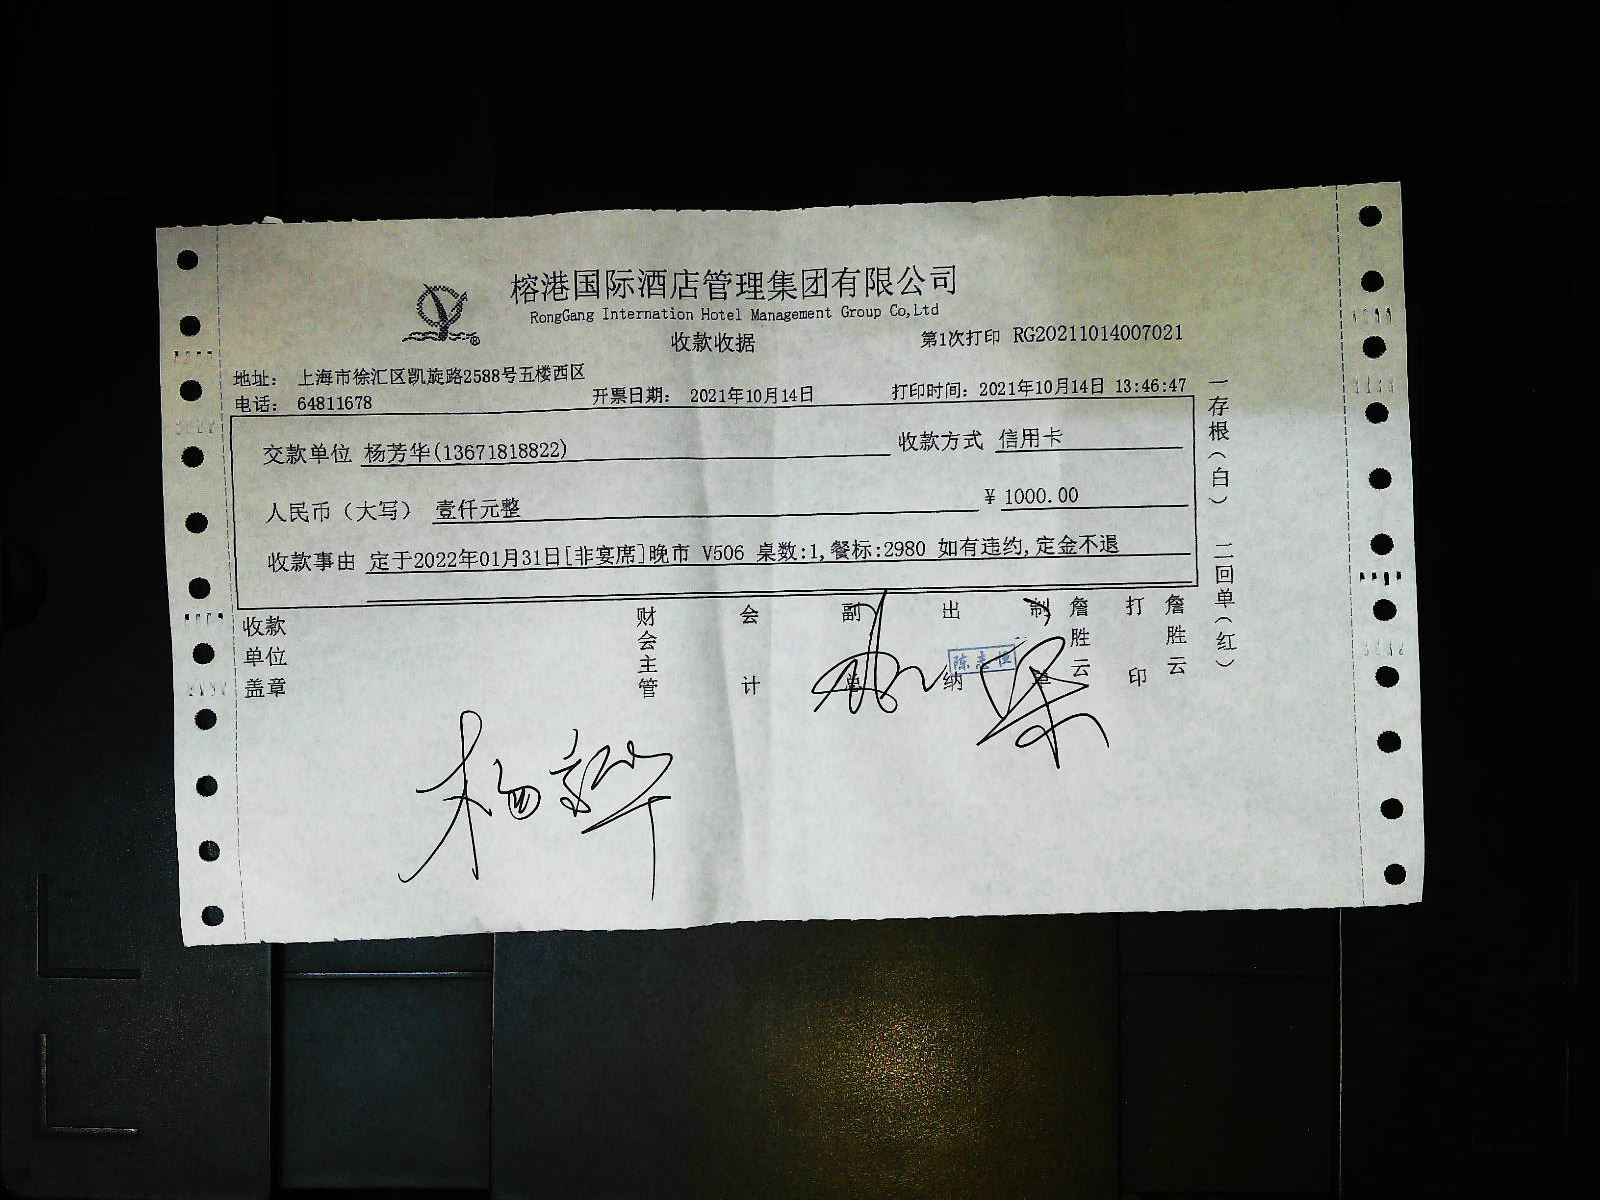 榕港国际酒店管理集团有限公司
RongGang Internation Hotel Management Group Co,Ltd
收款收据
第1次打印 RG20211014007021
地址： 上海市徐汇区凯旋路2588号五楼西区
电话： 64811678
开票日期： 2021年10月14日
打印时间：2021年10月14日 13:46:47
交款单位 杨芳华(13671818822)
收款方式 信用卡
人民币（大写） 壹仟元整
￥1000.00
收款事由 定于2022年01月31日[非宴席]晚市 V506 桌数:1,餐标:2980 如有违约,定金不退
一存根（白） 二回单（红）
收款单位盖章
财会主管
会计
副总
出纳
制单
詹胜云
打印
詹胜云